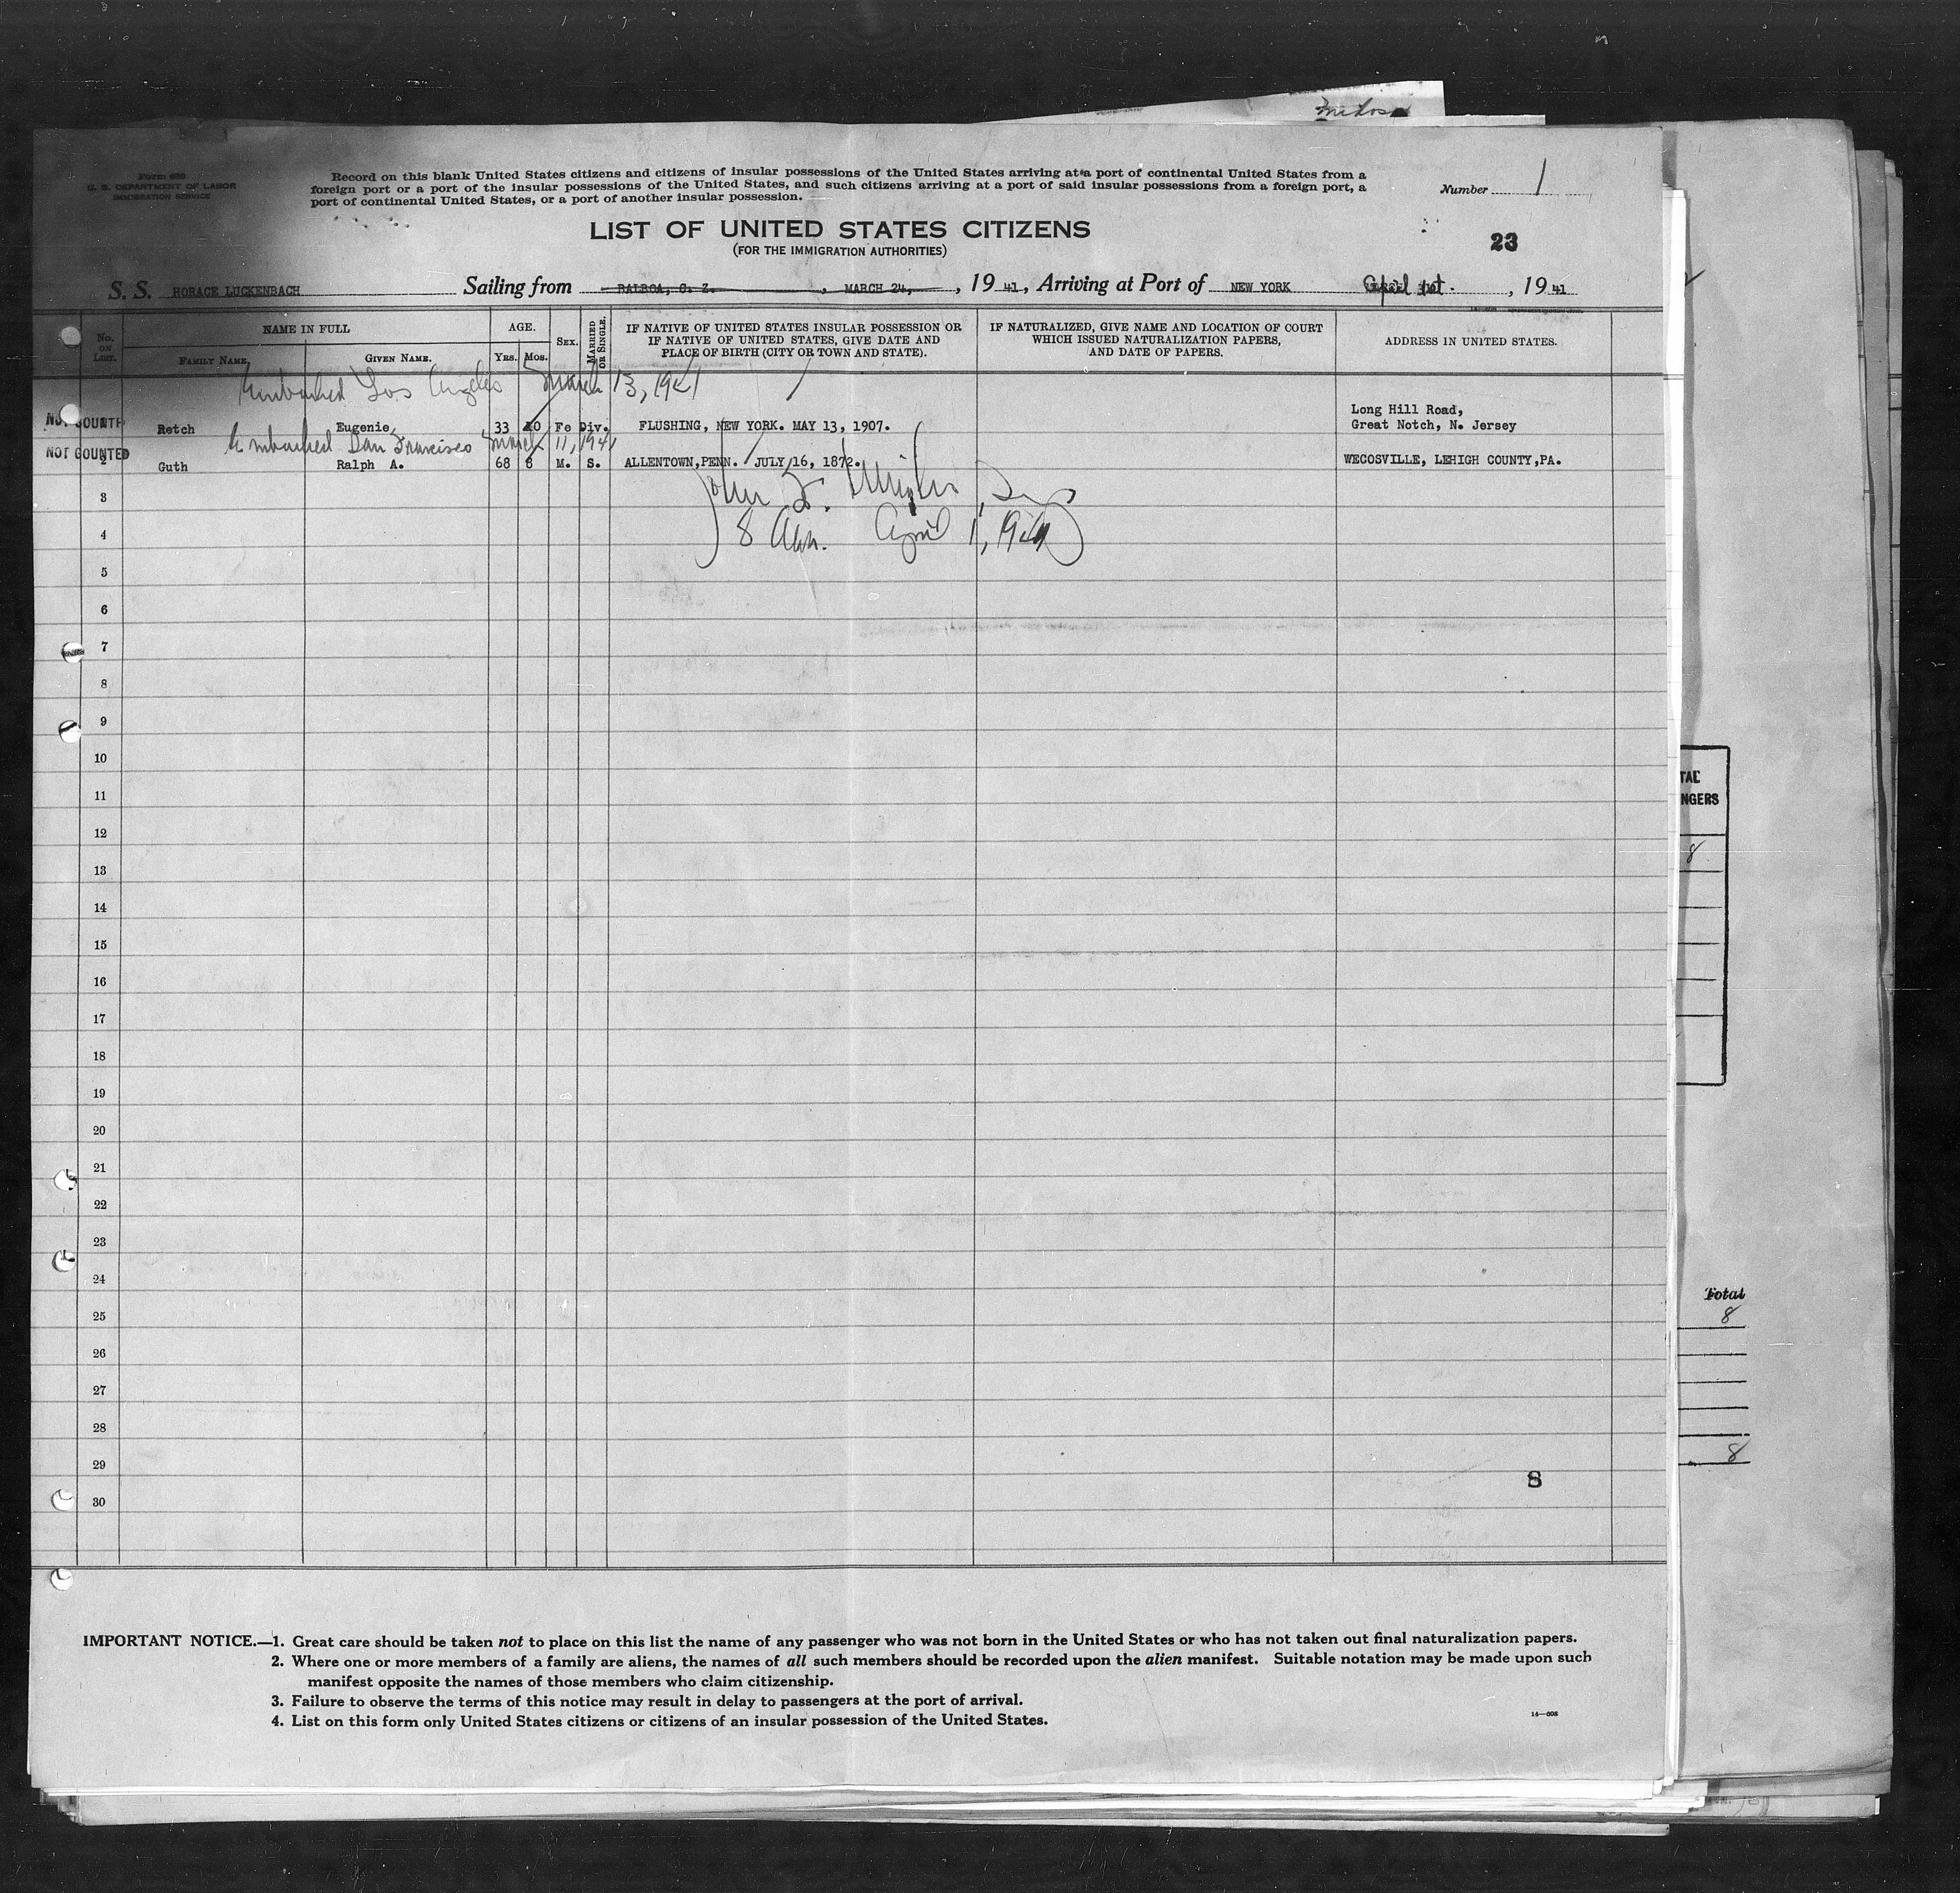 Form 630
U. S. DEPARTMENT OF LABOR
IMMIGRATION SERVICE
Record on this blank United States citizens and citizens of insular possessions of the United States arriving at a port of continental United States from a
foreign port or a port of the insular possessions of the United States, and such citizens arriving at a port of said insular possessions from a foreign port, a
port of continental United States, or a port of another insular possession.
Number 1
LIST OF UNITED STATES CITIZENS
(FOR THE IMMIGRATION AUTHORITIES)
23
S. S. HORACE LUCKENBACH Sailing from BALBOA, C. Z. , MARCH 24, , 19 41, Arriving at Port of NEW YORK April 1st. , 19 41
No. ON LIST. NAME IN FULL FAMILY NAME, GIVEN NAME. AGE. YRS. MOS. SEX. MARRIED OR SINGLE. IF NATIVE OF UNITED STATES INSULAR POSSESSION OR IF NATIVE OF UNITED STATES, GIVE DATE AND PLACE OF BIRTH (CITY OR TOWN AND STATE). IF NATURALIZED, GIVE NAME AND LOCATION OF COURT WHICH ISSUED NATURALIZATION PAPERS, AND DATE OF PAPERS. ADDRESS IN UNITED STATES.
Embarked Los Angeles March 13, 1941
Long Hill Road,
NOT COUNTE Retch Eugenie, 33 10 Fe Div. FLUSHING, NEW YORK. MAY 13, 1907. Great Notch, N. Jersey
Embarked San Francisco March 11, 1941
NOT COUNTED
2 Guth Ralph A. 68 8 M. S. ALLENTOWN,PENN. JULY 16, 1872. WECOSVILLE, LEHIGH COUNTY,PA.
3 John
4 8 Am. April 1, 1941
5
6
7
8
9
10
11
12
13
14
15
16
17
18
19
20
21
22
23
24
25
26
27
28
29 8
30
IMPORTANT NOTICE.—1. Great care should be taken not to place on this list the name of any passenger who was not born in the United States or who has not taken out final naturalization papers.
2. Where one or more members of a family are aliens, the names of all such members should be recorded upon the alien manifest. Suitable notation may be made upon such
manifest opposite the names of those members who claim citizenship.
3. Failure to observe the terms of this notice may result in delay to passengers at the port of arrival.
4. List on this form only United States citizens or citizens of an insular possession of the United States.
14—608
TAL
NGERS
8
Total
8
8